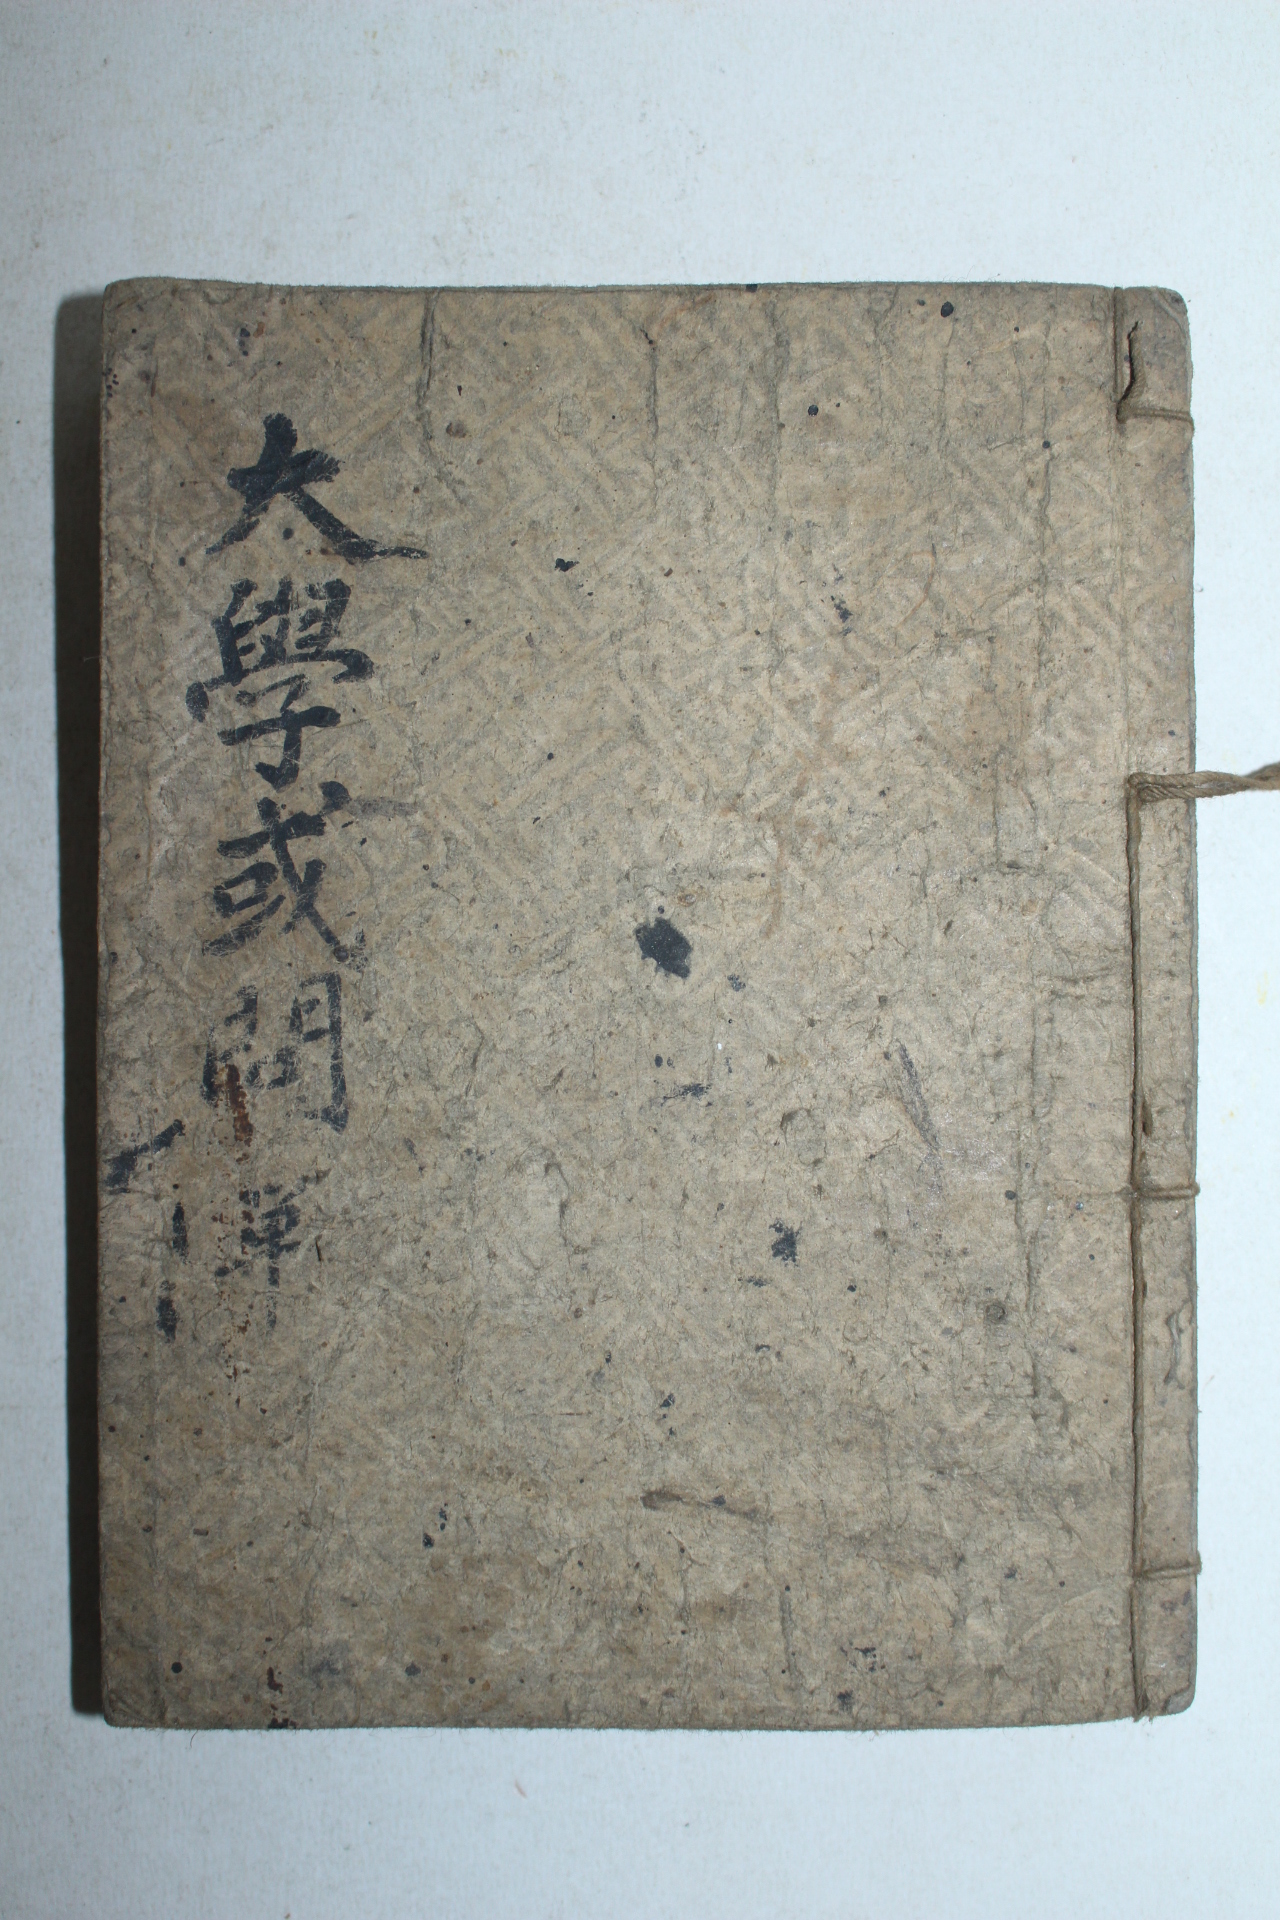 大學或問 單